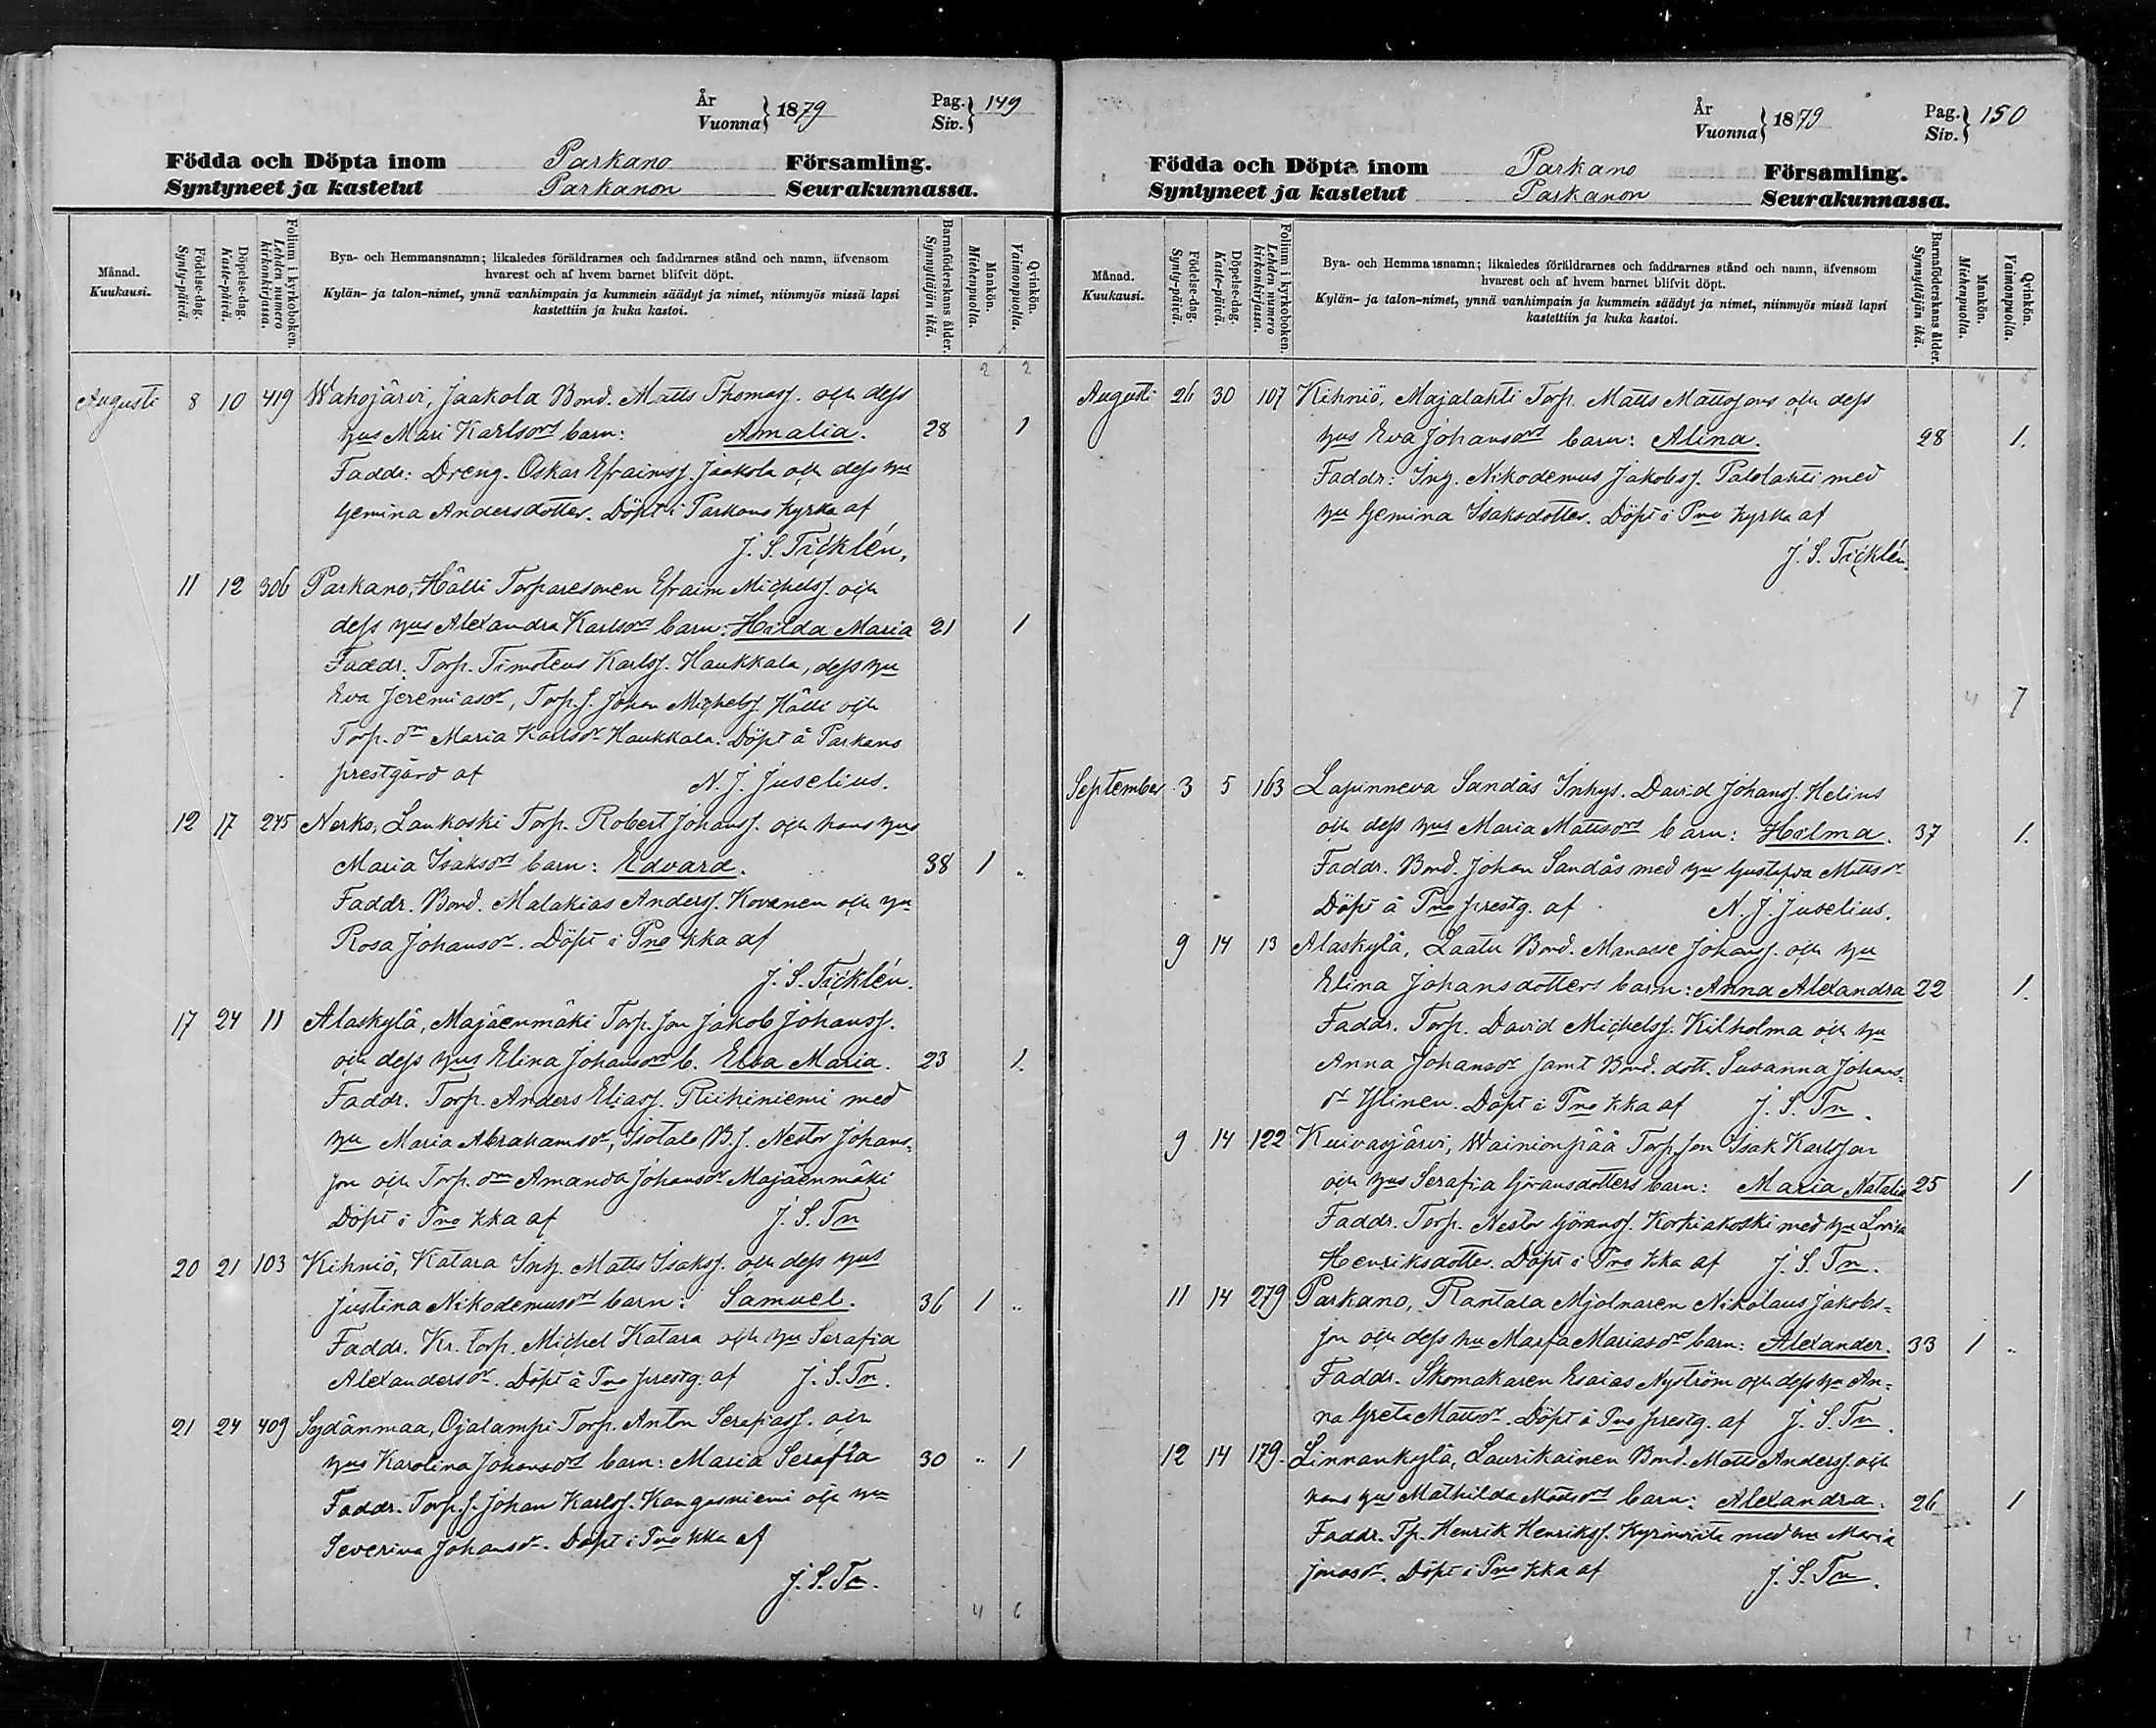 År
Vuonna} 1879
Pag.
Siv.} 149
Födda och Döpta inom Parkano Församling.
Syntyneet ja kastetut Parkanon Seurakunnassa.
Månad.
Kuukausi.
Födelse-dag.
Synty-päivä.
Döpelse-dag.
Kaste-päivä.
Folium i kyrkoboken.
Lehden numero kirkonkirjassa.
Bya- och Hemmansnamn; likaledes föräldrarnes och faddrarnes stånd och namn, äfvensom
hvarest och af hvem barnet blifvit döpt.
Kylän- ja talon-nimet, ynnä vanhimpain ja kummein säädyt ja nimet, niinmyös missä lapsi
kastettiin ja kuka kastoi.
Barnaföderskans ålder.
Synnyttäjän ikä.
Mankön.
Miehenpuolia.
Qvinkön.
Vaimonpuolia.
2 2
Augusti 8 10 419 Wahojärvi, Jaakola Bond. Matts Thomass. och dess
hus Mari Karlsdrs barn: Amalia. 28 1
Faddr: Dreng. Oskar Efraimss. Jaakola och dess hu
Gemina Andersdotter. Döpt i Parkano kyrka af
J. S. Ticklén.
11 12 306 Parkano, Hälli Torparesonen Efraim Michelss. och
dess hus Alexandra Karlsdrs barn: Hilda Maria 21 1
Faddr. Torp. Timoteus Karlss. Haukkala, dess hu
Eva Jeremiasdr, Torp. s. Johan Michelss. Hälli och
Torp. dr Maria Karlsdr Haukkala. Döpt å Parkano
prestgård af N. J. Juselius.
12 17 245 Nerko, Lankoski Torp. Robert Johanss. och hans hus
Maria Isaksdrs barn: Edvard. 38 1 "
Faddr. Bond. Malakias Anderss. Kovanen och hu
Rosa Johansdr. Döpt i Pno kka af
J. S. Ticklén.
17 24 11 Alaskylä, Majäenmäki Torp. son Jakob Johanss.
och dess hus Elina Johansdrs b. Elsa Maria. 23 1.
Faddr. Torp. Anders Eliass. Riihiniemi med
hu Maria Abrahamsdr, Isotalo B. s. Nestor Johans-
son och Torp. dr Amanda Johansdr Majäenmäki
Döpt i Pno kka af J. S. Tn
20 21 103 Kihniö, Katara Inh. Matts Isakss. och dess hus
Justina Nikodemusdrs barn: Samuel. 36 1 "
Faddr. Kr. torp. Michel Katara och hu Serafia
Alexandersdr. Döpt å Pno prestg. af J. S. Tn.
21 24 409 Sydänmaa, Ojalampi Torp. Anton Serafiass. och
hus Karolina Johansdrs barn: Maria Serafia 30 " 1
Faddr. Torp. s. Johan Karlss. Kangasniemi och hu
Severina Johansdr. Döpt i Pno kka af
J. S. Tn.
4 6
År
Vuonna} 1879
Pag.
Siv.} 150
Födda och Döpta inom Parkano Församling.
Syntyneet ja kastetut Parkanon Seurakunnassa.
Månad.
Kuukausi.
Födelse-dag.
Synty-päivä.
Döpelse-dag.
Kaste-päivä.
Folium i kyrkoboken.
Lehden numero kirkonkirjassa.
Bya- och Hemmansnamn; likaledes föräldrarnes och faddrarnes stånd och namn, äfvensom
hvarest och af hvem barnet blifvit döpt.
Kylän- ja talon-nimet, ynnä vanhimpain ja kummein säädyt ja nimet, niinmyös missä lapsi
kastettiin ja kuka kastoi.
Barnaföderskans ålder.
Synnyttäjän ikä.
Mankön.
Miehenpuolia.
Qvinkön.
Vaimonpuolia.
4 6
Augusti 26 30 107 Kihniö, Majalahti Torp. Matts Mattssons och dess
hus Eva Johansdrs barn: Alina. 28 1.
Faddr: Inh. Nikodemus Jakobss. Palolahti med
hu Gemina Isaksdotter. Döpt i Pno kyrka af
J. S. Ticklén.
4 7
September 3 5 163 Lapinneva Sandås Inhys. David Johanss. Helius
och dess hus Maria Mattsdrs barn: Hilma. 37 1.
Faddr. Bond. Johan Sandås med hu Gustafva Mattsdr
Döpt å Pno prestg. af N. J. Juselius.
9 14 13 Alaskylä, Laatu Bond. Manasse Johanss. och hu
Elina Johansdotters barn: Anna Alexandra 22 1.
Faddr. Torp. David Michelss. Kilholma och hu
Anna Johansdr samt Bond. dott. Susanna Johans-
dr Ylinen. Döpt i Pno kka af J. S. Tn.
9 14 122 Kuivasjärvi, Wainionpää Torp. son Isak Karlsson
och hus Serafia Göransdotters barn: Maria Natalia 25 1
Faddr. Torp. Nestor Göranss. Korpiakoski med hu Lovisa
Henriksdotter. Döpt i Pno kka af J. S. Tn.
11 14 279 Parkano, Rantala Mjolnaren Nikolaus Jakobs-
son och dess hu Marfa Mariasdrs barn: Alexander. 33 1 "
Faddr. Skomakaren Esaias Nyström och dess hu An-
na Greta Mattsdr. Döpt å Pno prestg. af J. S. Tn.
12 14 179. Linnankylä, Laurikainen Bond. Matts Anderss. och
hans hus Mathilda Mattsdrs barn: Alexandra. 26 1
Faddr. Tp. Henrik Henrikss. med hu Maria
Jonasdr. Döpt i Pno kka af J. S. Tn.
1 4